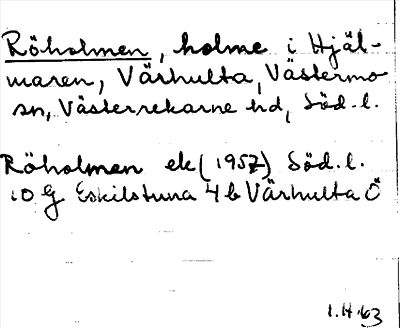 Röholmen, holme i Hjäl-
maren, Värhulta, Västermo
sn, Västerrekarne hd, Söd. l.
Röholmen ek (1957) Söd. l.
10 G Eskilstuna 4 b Värhulta Ö
1.H.63